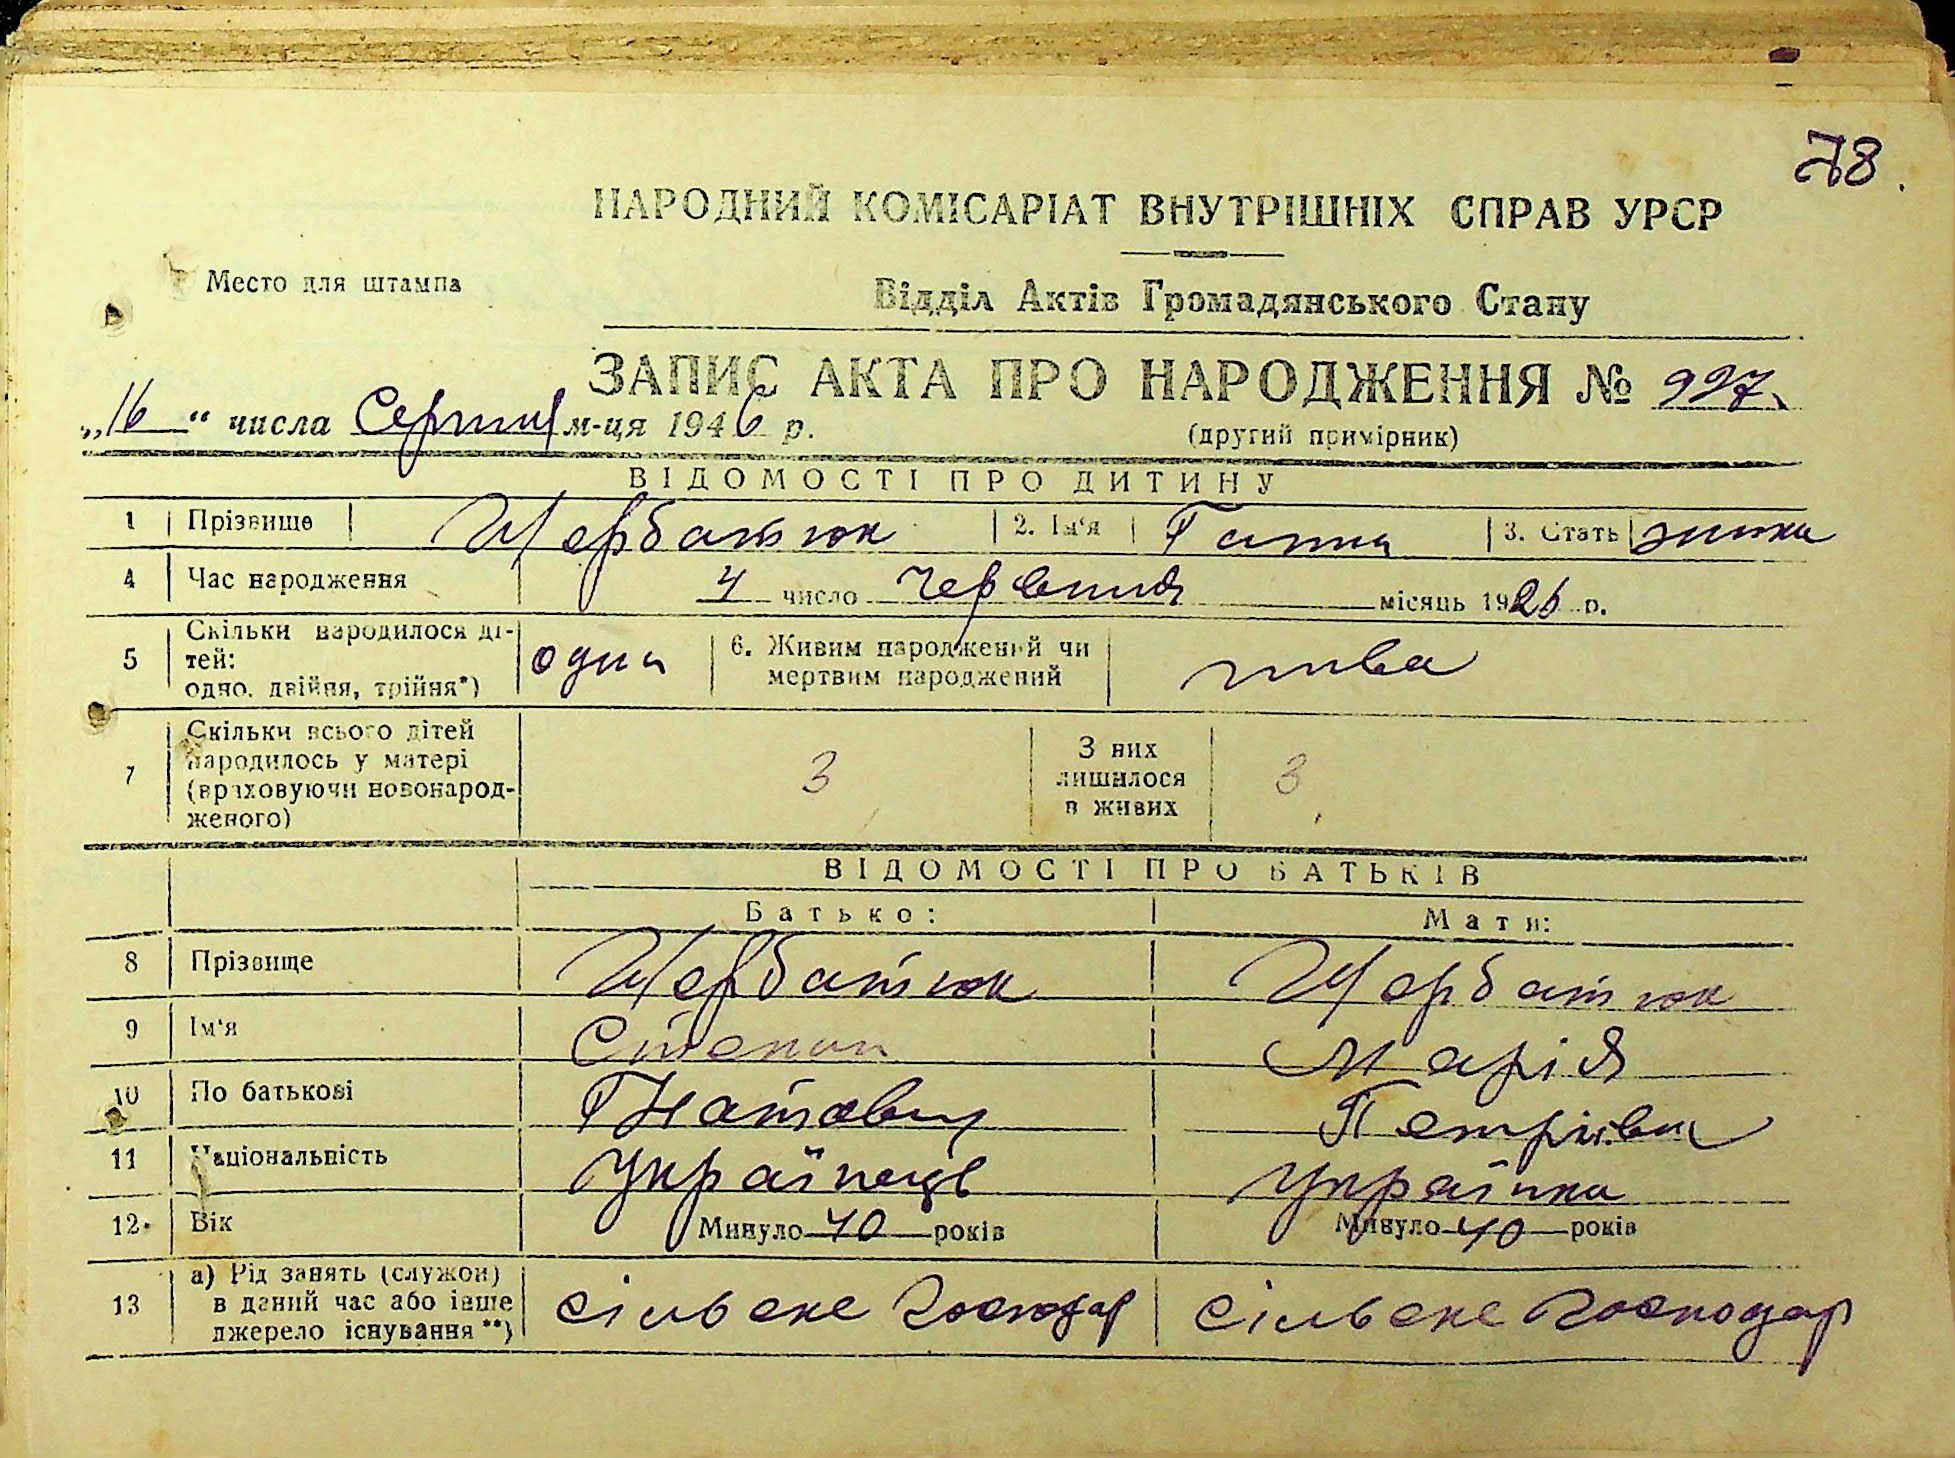 78.
НАРОДНИЙ КОМІСАРІАТ ВНУТРІШНІХ СПРАВ УРСР
Место для штампа
Відділ Актів Громадянського Стану
ЗАПИС АКТА ПРО НАРОДЖЕННЯ № 997
„16“ числа Серпня м-ця 1946 р.
(другий примірник)
ВІДОМОСТІ ПРО ДИТИНУ
1 Прізвище Щербатюк 2. Ім'я Ганна 3. Стать жінка
4 Час народження 4 число червния місяць 1926 р.
5 Скільки народилося ді-
тей:
одно, двійня, трійня*) одна 6. Живим народжений чи
мертвим народжений жива
7 Скільки всього дітей
народилось у матері
(враховуючи новонарод-
женого) 3 З них
лишилося
в живих 3
ВІДОМОСТІ ПРО БАТЬКІВ
Батько: Мати:
8 Прізвище Щербатюк Щербатюк
9 Ім'я Степан Марія
10 По батькові Гнатович Петрівна
11 Національність Українець Українка
12. Вік Минуло 40 років Минуло 40 років
13 а) Рід занять (служби)
в даний час або інше
джерело існування**) сільске господар сільске господар